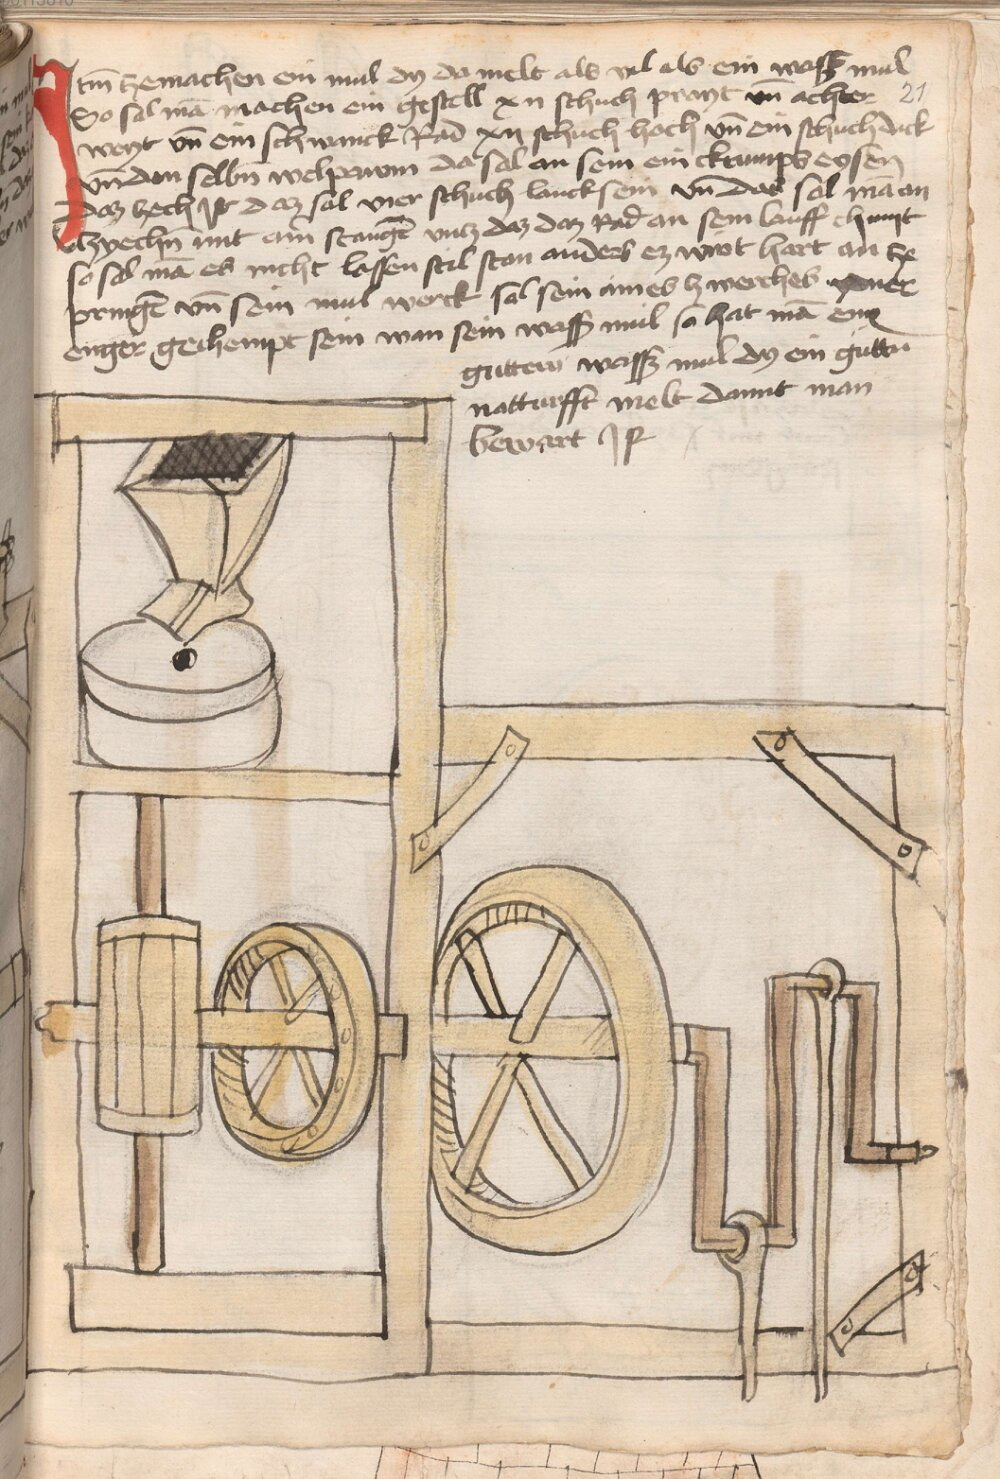 Itm̄ tzemachen ein mul dy do melt als vil als ein wasß mul
So sal mā machen ein gestell xii schuch prayt vn̄ achter 21
weyt vn̄ ein schwinck Rad xii schuch hoch vn̄ ein schuch dick
vn̄ an selbn̄ welpawm da sal an sein ein ckrumps eysen
daz sol vier schuch lanck sein vn̄ daz sal mā an
mit eim stangē vntz daz daz Rad an sein lauff chumt
so sal mā es nicht lassen stil stan anders ez wirt hart an tze
pringē vn̄ sein mul werck sal sein eines werches
enger gechempt sein wan sein wasß mul so hat mā ein
gutten wasß mul dy ein guttn̄
notturfft melt damit man
bewart Ist